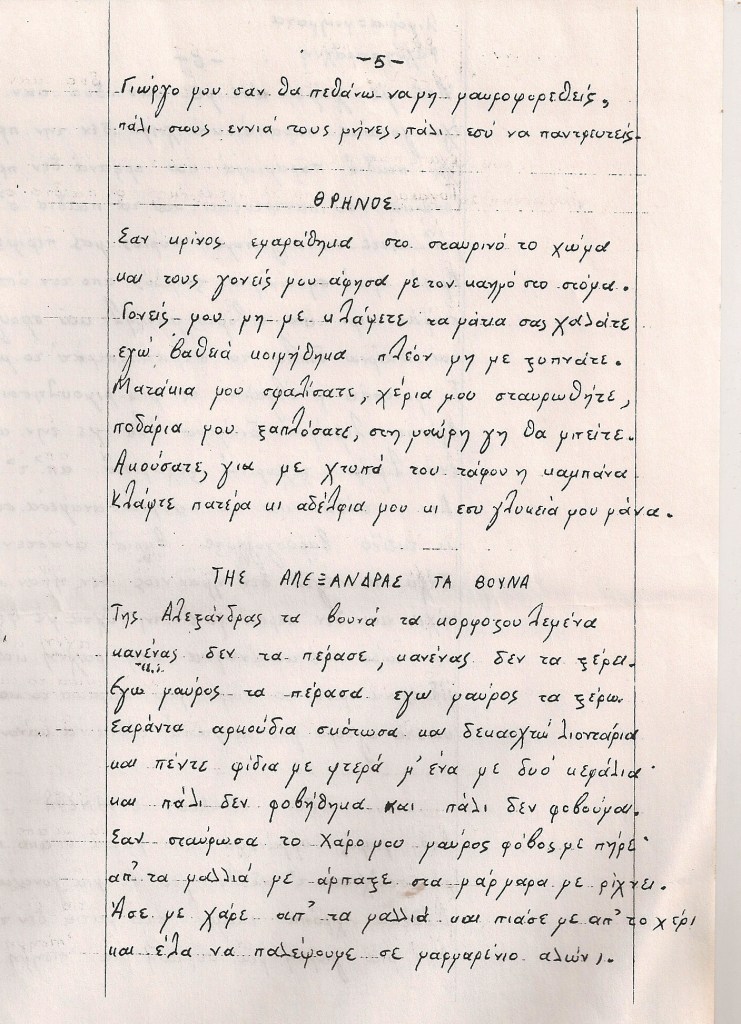 -5-
Γιώργο μου σαν θα πεθάνω να μη μαυροφορεθείς,
πάλι στους εννιά τους μήνες, πάλι εσύ να παντρευτείς.
ΘΡΗΝΟΣ
Σαν κρίνος εμαράθηκα στο σταυρινό το χώμα
και τους γονείς μου άφησα με τον καημό στο στόμα.
Γονείς μου μη με κλάψετε τα μάτια σας χαλάτε
εγώ βαθειά κοιμήθηκα πλέον μη με ξυπνάτε.
Ματάκια μου σφαλίσατε, χέρια μου σταυρωθήτε,
ποδάρια μου ξαπλόσατε, στη μαύρη γη θα μπείτε.
Ακούσατε, για με χτυπά του τάφου η καμπάνα
Κλάψτε πατέρα κι αδέλφια μου κι εσυ γλυκειά μου μάνα.
ΤΗΣ ΑΛΕΞΑΝΔΡΑΣ ΤΑ ΒΟΥΝΑ
Της Αλεξάνδρας τα βουνά τα κορφοξουλεμένα
κανένας δεν τα πέρασε, κανένας δεν τα ξέρει.
Εγω μαύρος τα πέρασα εγω μαύρος τα ξέρω.
Σαράντα αρκούδια σκότωσα και δεκαοχτώ λιοντάρια
και πέντε φίδια με φτερά μ' ένα με δυό κεφάλια
και πάλι δεν φοβήθηκα και πάλι δεν φοβούμαι.
Σαν σταύρωσα το Χάρο μου μαύρος φόβος με πήρε
απ' τα μαλλιά με άρπαξε στα μάρμαρα με ρίχνει.
Άσε με χάρε απ' τα μαλλιά και πιάσε με απ' το χέρι
και έλα να παλέψουμε σε μαρμαρένιο αλώνι.